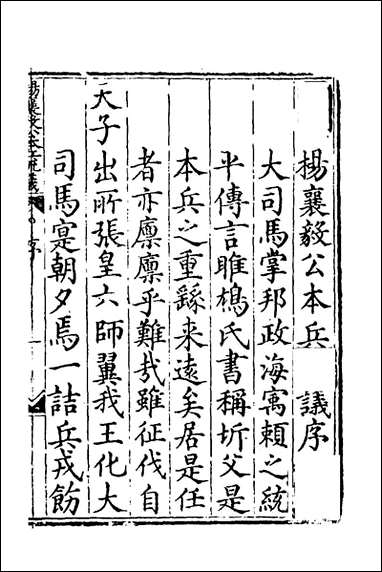 楊襄毅公本兵 議序
大司馬掌邦政海寓頼之統
平傳言雎鳩氏書稱圻父是
本兵之重繇来遠矣居是任
者亦廩廩乎難㢤雖征伐自
天子出所張皇六師翼我王化大
司馬寔朝夕焉一詰兵戎飭
楊襄毅公本兵疏議 序